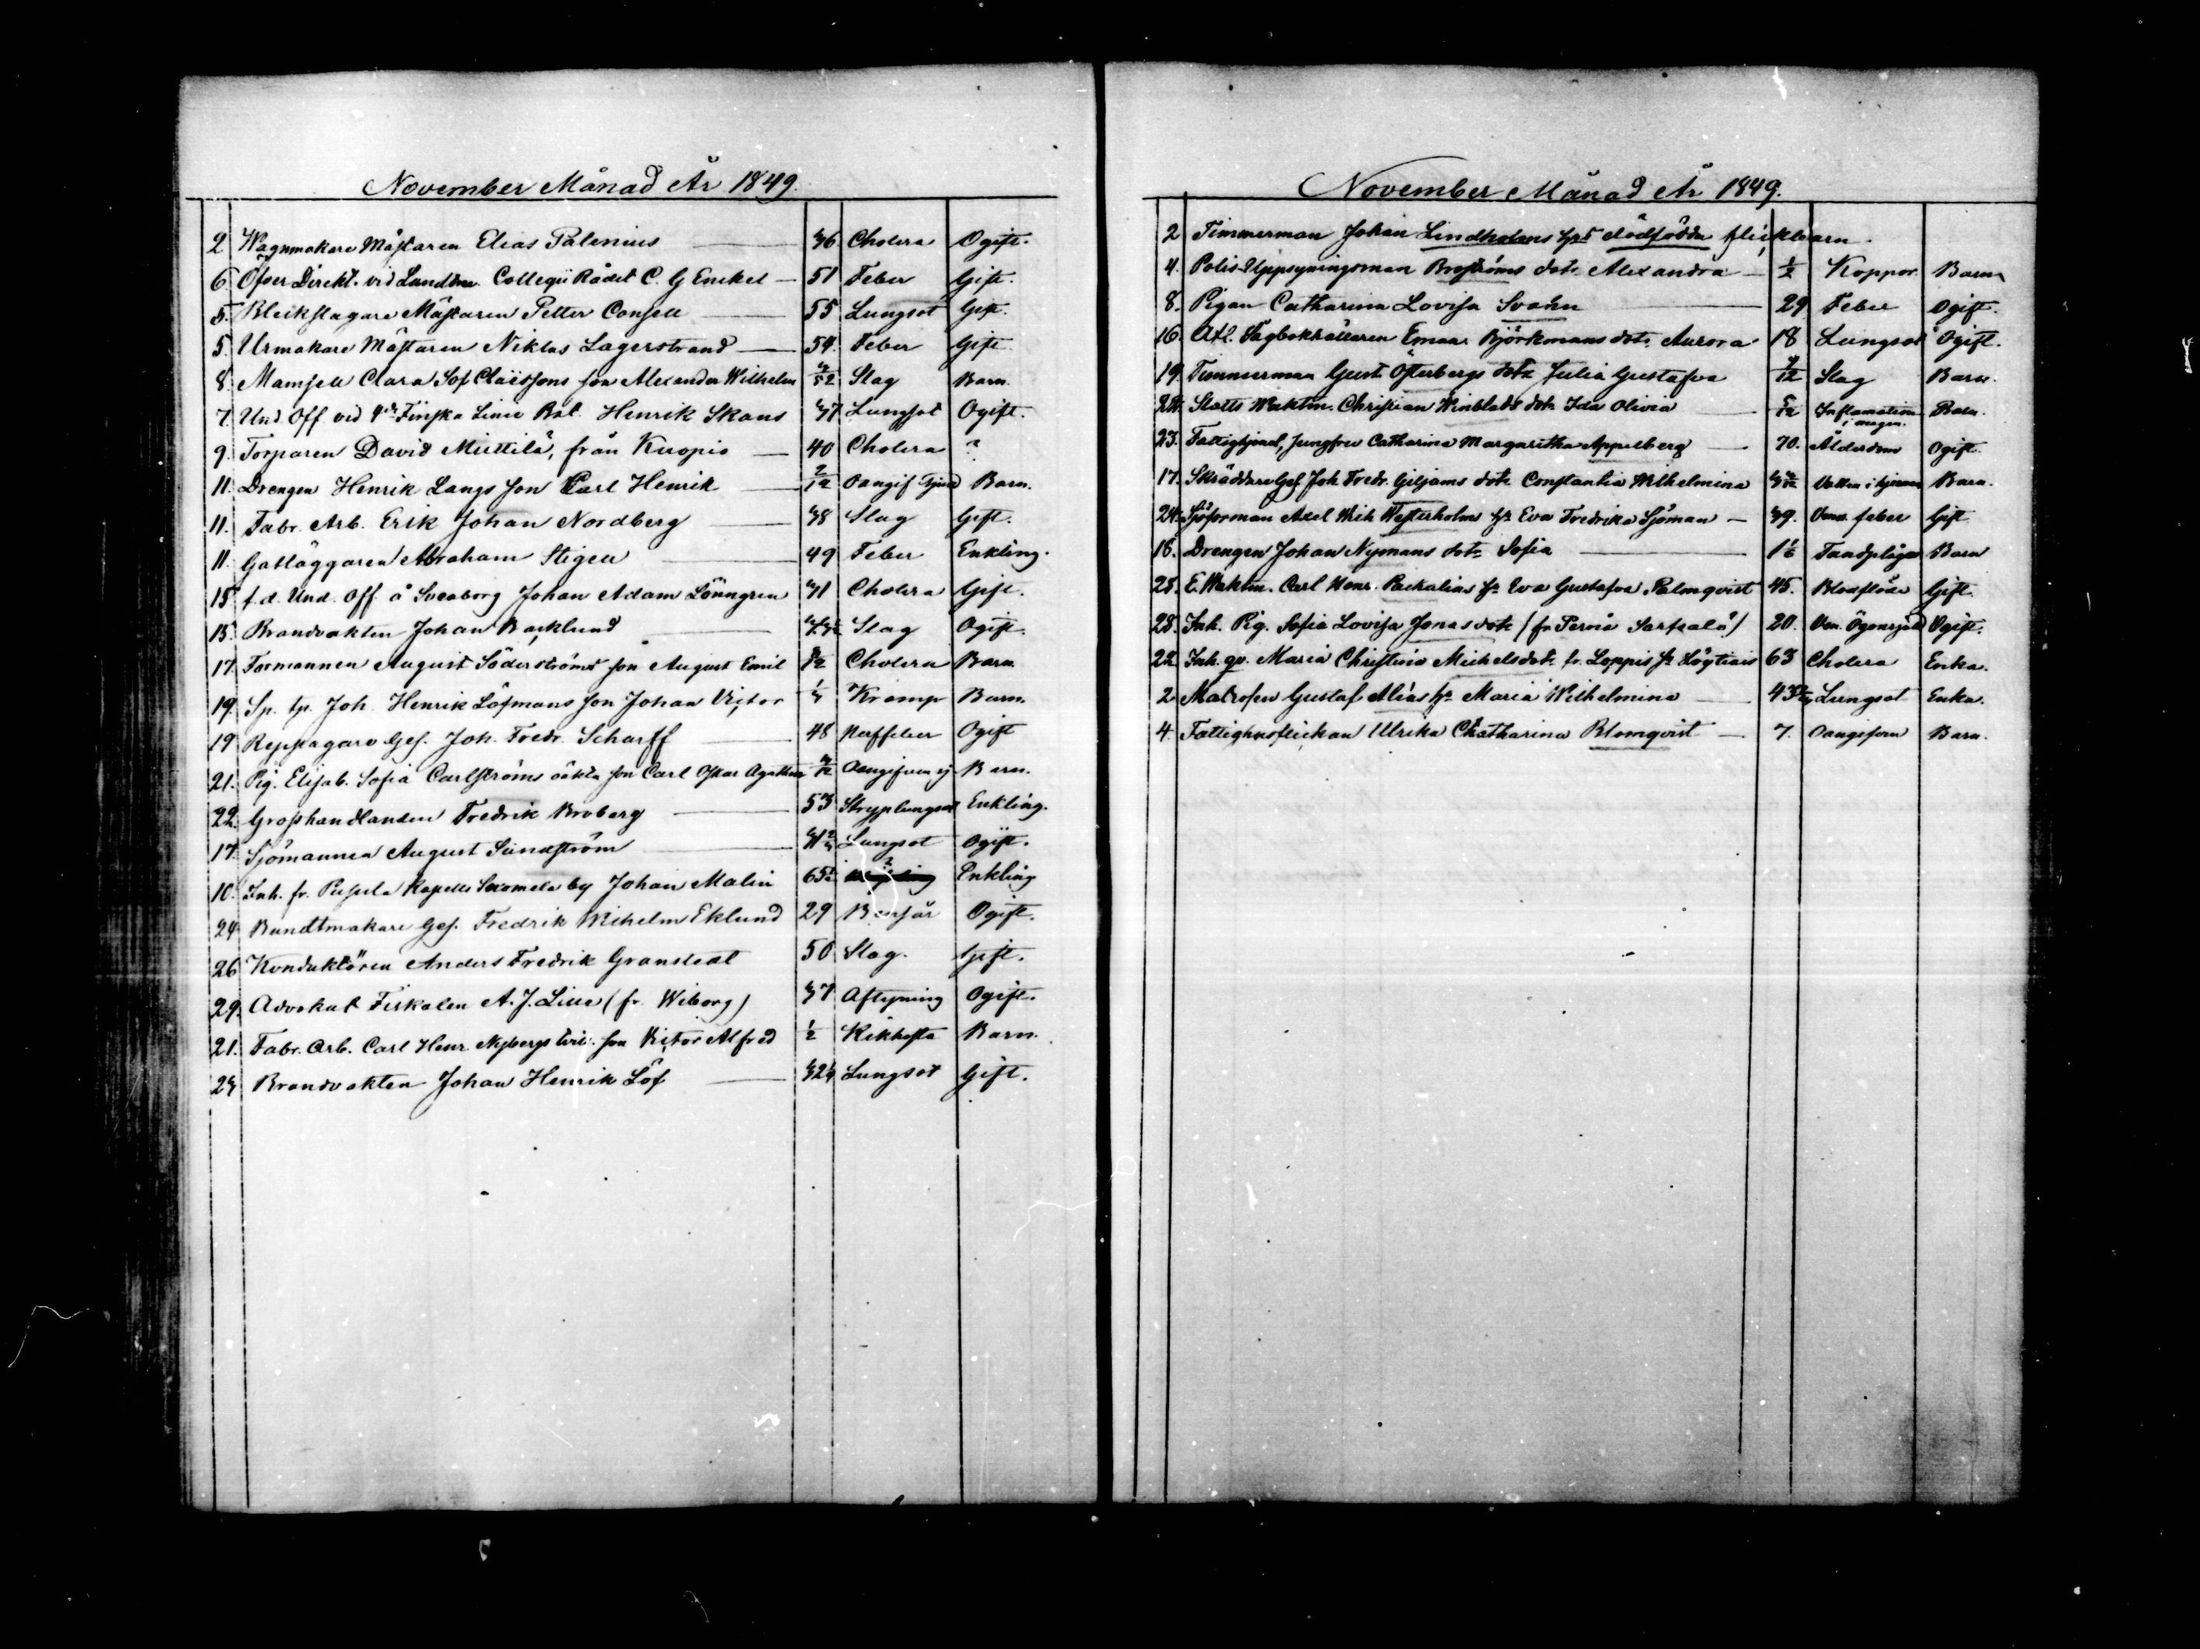 November Månad År 1849.
2 Wagnmakare Mästaren Elias Palenius 36 Cholera Ogift.
6. Öfver Direkt. vid Landtm. Collegii Rådet C. G Enckel 51 Feber Gift.
5. Bleckslagare Mästaren Petter Consell 55 Lungsot Gift.
5. Urmakare Mästaren Niklas Lagerstrand 54. Feber Gift
8. Mamsell Clara Sof Claëssons son Alexander Wilhelm 3/52 Slag Barn.
7. Und. Off vid Finska Linie Bat. Henrik Skans 37 Lungsot Ogift.
9. Torparen David Miettilä, från Kuopio 40 Cholera ?
11. Drengen Henrik Langs son Carl Henrik 2/12 Oangif Barn.
11. Fabr. Arb. Erik Johan Nordberg 38 Slag Gift.
11. Gatläggaren Abraham Stigell 49 Feber Enkling.
15 f.d. Und. Off. å Sveaborg Johan Adam Lönngren 31 Cholera Gift.
13. Brandvakten Johan Backlund Slag Ogift.
17. Formannen August Söderströms son August Emil Cholera Barn
19. Sp. tp. Joh. Henrik Löfmans son Johan Victor Kramp Barn.
19 Reppagare Ges. Joh. Fredr. Scharff 48 Naffeber Ogift
21. Pig. Elisab. Sofia Carlströms oäkta son Carl Oskar Agathon Oangifven sj. Barn.
22. Grosshandlanden Fredrik Broberg 53 Stryplungsot Enkling.
17. Sjömannen August Sundström Lungsot Ogift.
10. Inh. fr. Pusula Kapell by Johan Malin ? Enkling
24 Bundtmakare Ges. Fredrik Wilhelm Eklund 29 Bensår Ogift.
26 Konduktören Anders Fredrik Granstedt 50 Slag. Gift.
29. Advokat Fiskalen A. J. Lille (fr. Wiborg) 37 Aftyning Ogift.
21. Fabr. Arb. Carl Henr. Nybergs son Victor Alfred 1/2 Kikhosta Barn.
23 Brandvakten Johan Henrik Löf Lungsot Gift.
November Månad År 1849.
2 Timmerman Johan Lindholms hs dödfödda flickbarn.
4. Polis-Uppsyningsman Broströms dotr Alexandra 1/2 Koppor Barn
8. Pigan Catharina Lovisa Svahn 29 Feber Ogift.
16. Afl. Dagbokhållaren Björkmans dotr Aurora 18 Lungsot Ogift.
19. Timmerman Gust. Österbergs dotr Julia Gustafva Slag Barn.
Slotts Waktm. Christian Winblads dotr Ida Olivia Inflamation i magen. Barn.
23. Fattighjonet, Jungfru Catharina Margaritha Appelberg 70. Ålderdom Ogift.
17. Skräddare Ges. Joh. Fredr. Giljams dotr Constantia Wilhelmina Vatten i hjärnan Barn.
24. Sjöforman Axel Wilh Westerholms hs Eva Fredrika Sjöman 39. feber Gift
18. Drengen Johan Nymans dotr Sofia 1 1/6 Tandplågor Barn
25. E. Waktm. Carl Henr. hs Eva Gustafva Palmqvist 45. Blodflöde Gift.
28. Inh. Pig. Sofia Lovisa Jonasdotr (fr Pernå Sarfsalö) 20. Ven. Ögonsjuk Ogift.
22. Inh. qv. Maria Christina Michelsdotr fr. Loppis 63 Cholera Enka.
2. Matrosen Gustaf Aliäs hs Maria Wilhelmina 43 Lungsot Enka.
4. Fattighusflickan Ulrika Chatharina Blomqvist 7. Oangifven Barn.